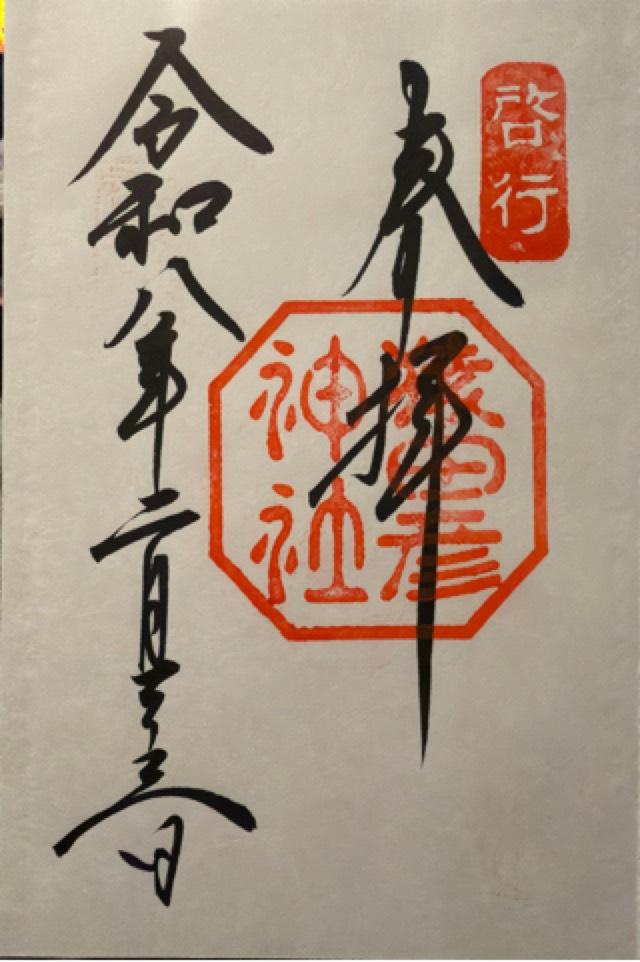 啓行
奉拝
猨田彦
神社
令和八年二月二十三日